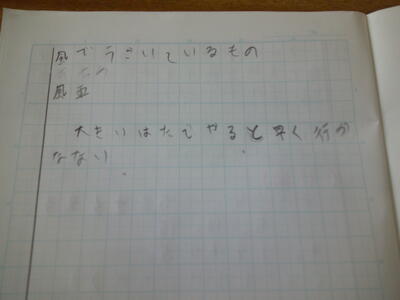 風でうごいているもの
風車
大きいはたでやると早く行か
なない